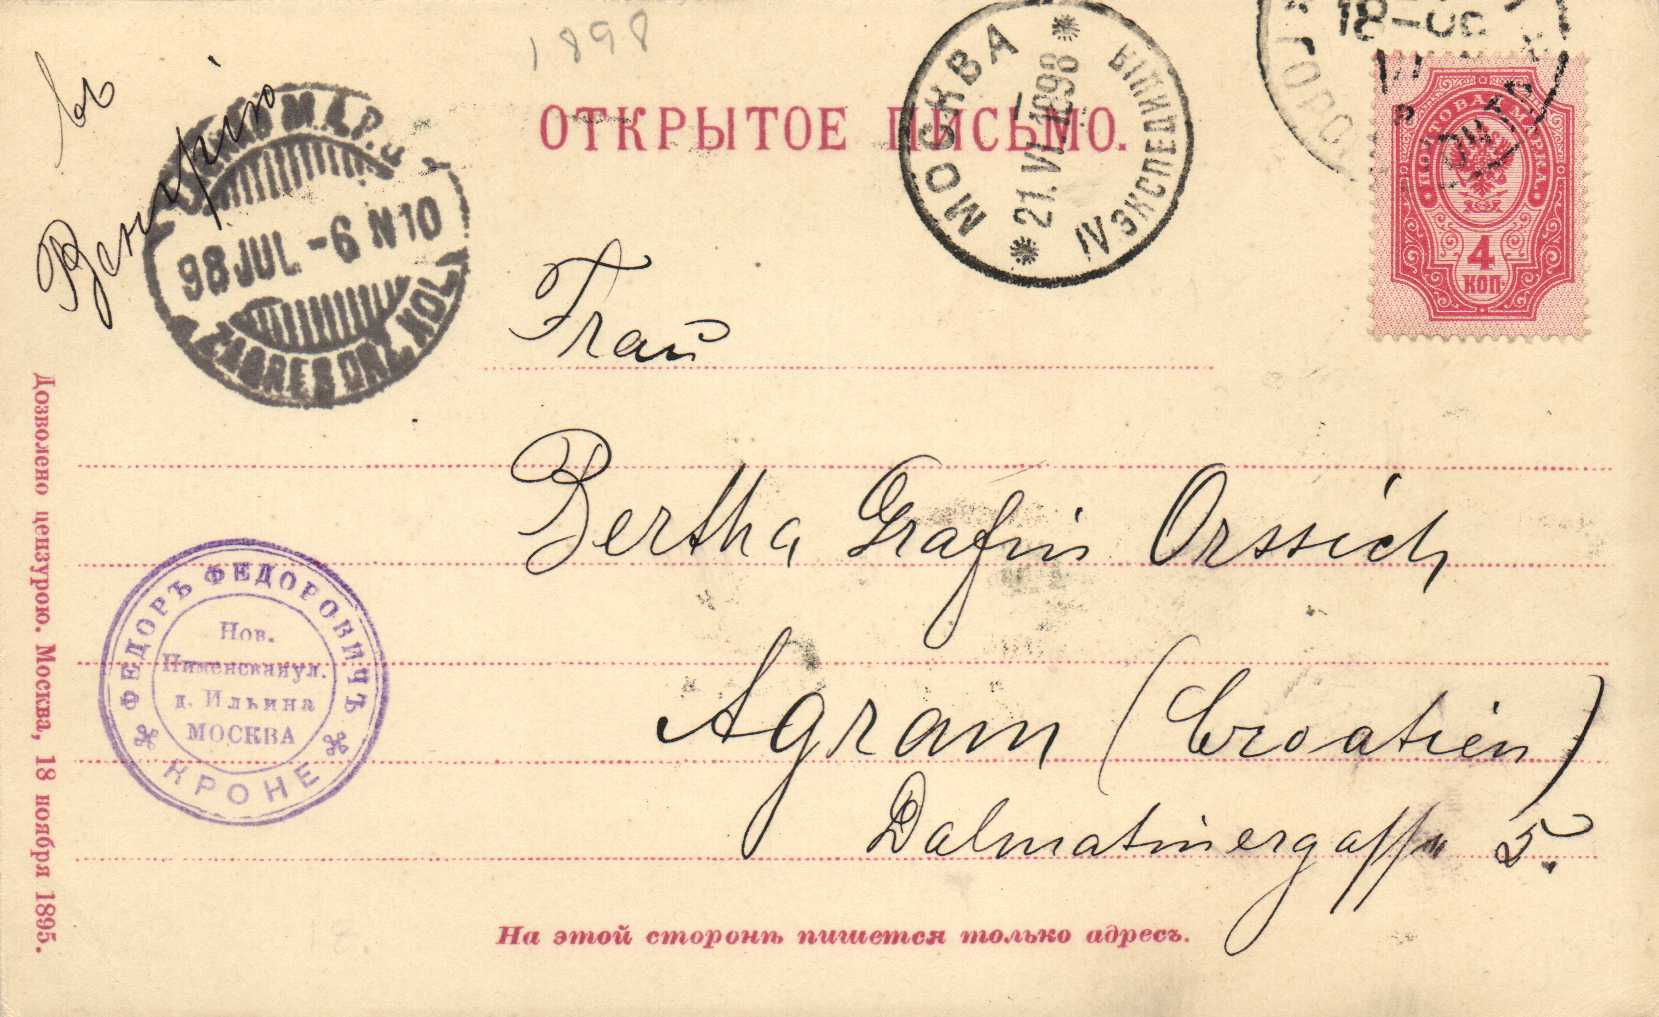 1898
въ
Венгрію
ОТКРЫТОЕ ПИСЬМО.
МОСКВА
21.VI.1898
IV ЭКСПЕДИЦІЯ
18
ПОЧТОВАЯ МАРКА.
4
КОП.
98 JUL.-6 N10
ZAGREB
Frau
Bertha Gräfin Orssich
Agram (Croatien)
Dalmatinergasse 5.
ФЕДОРЪ ФЕДОРОВИЧЪ
Нов.
Пименская ул.
д. Ильина
МОСКВА
КРОНЕ
На этой сторонѣ пишется только адресъ.
Дозволено цензурою. Москва, 18 ноября 1895.